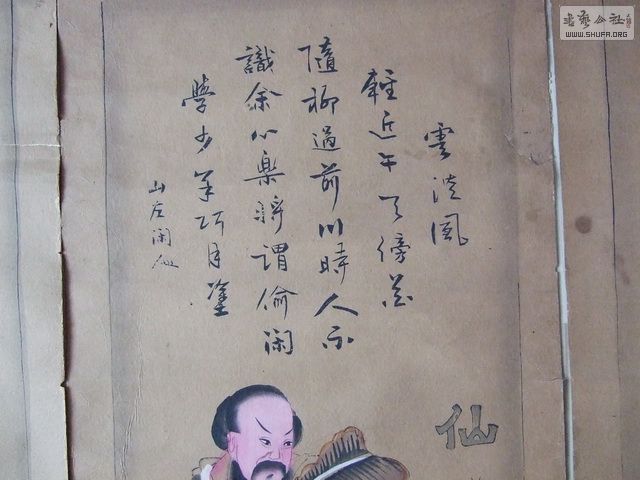 書藝公社
WWW.SHUFA.ORG
雲淡風
輕近午天傍花
隨柳過前川時人不
識余心樂將謂偷閑
學少年巧月塗
山左閑仙
仙